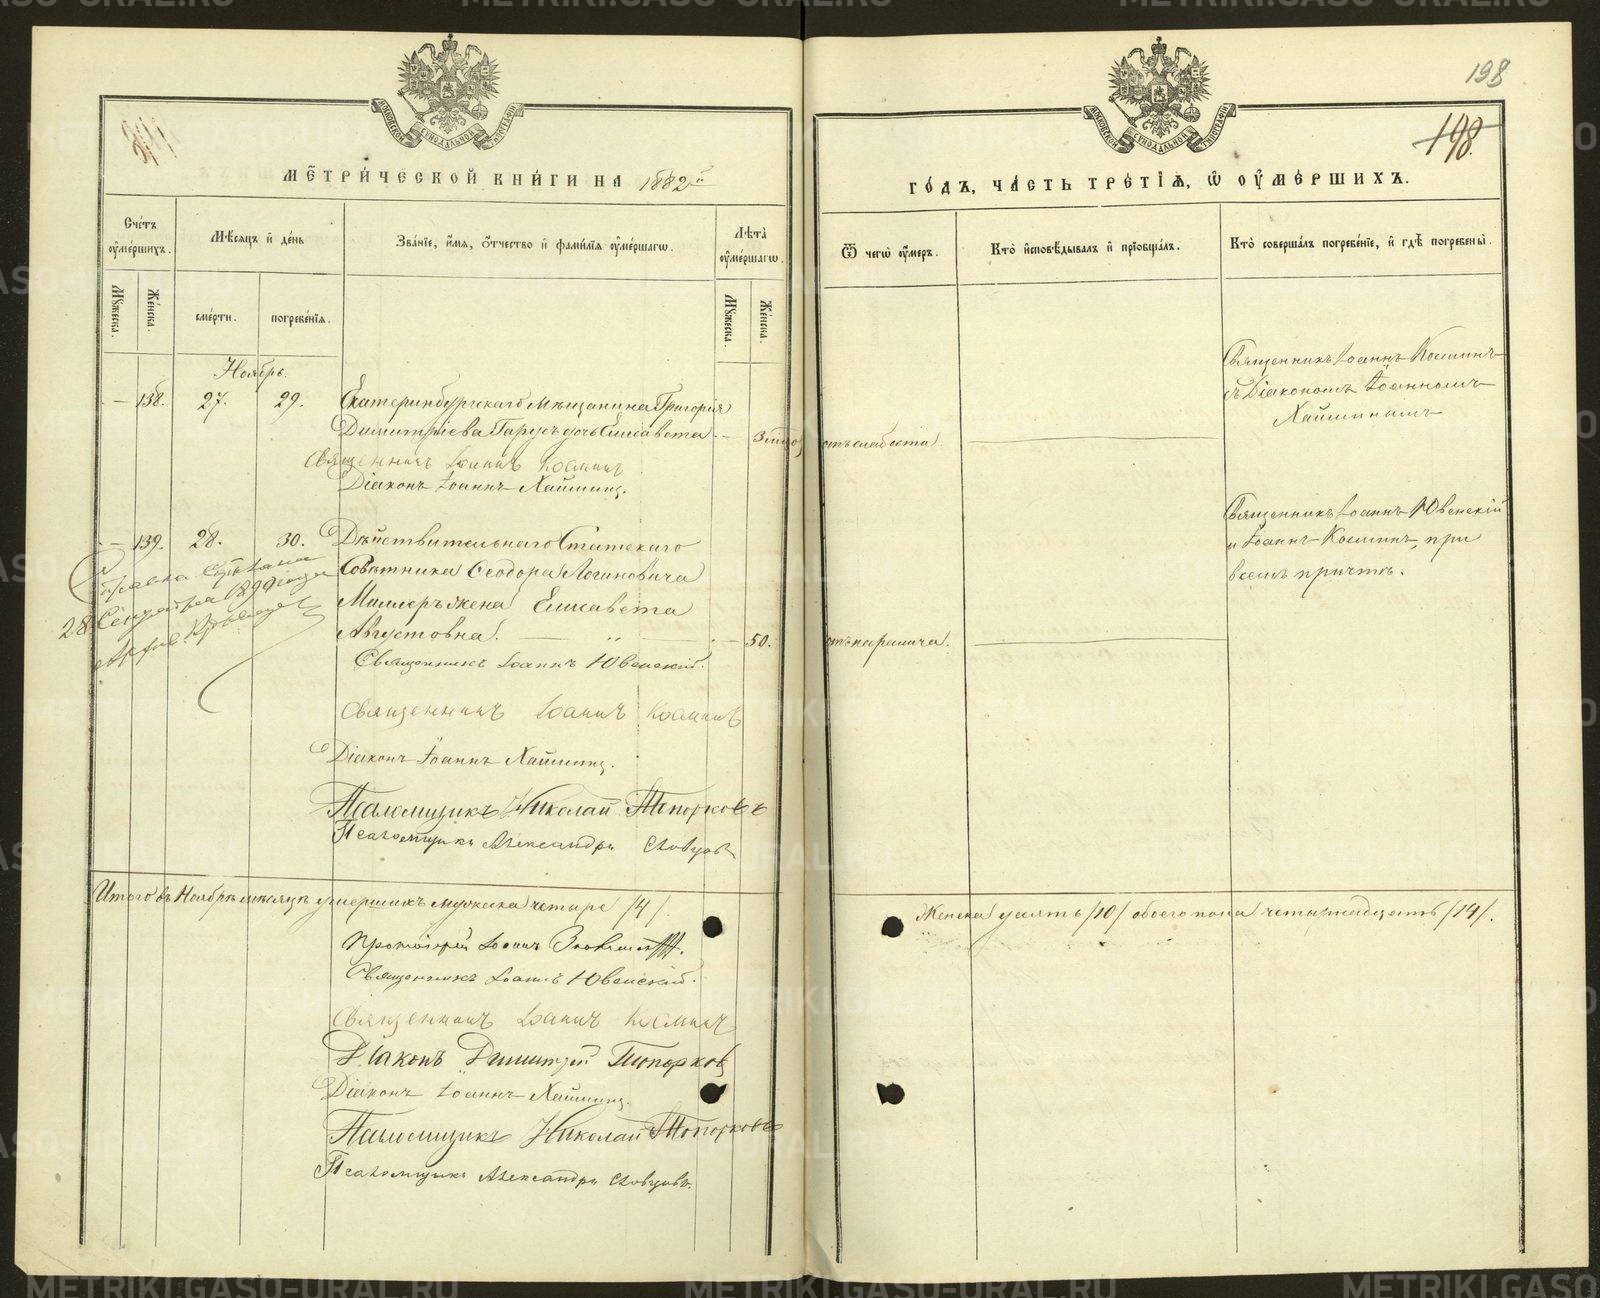 МЕТРИЧЕСКОЙ КНИГИ НА 1882й
ГОДЪ, ЧАСТЬ ТРЕТІЯ, Ѡ ОУМЕРШИХЪ.
198
198
МОСКОВСКОЙ СѴНОДАЛЬНОЙ ТИПОГРАФІИ
МОСКОВСКОЙ СѴНОДАЛЬНОЙ ТИПОГРАФІИ
Счетъ оумершихъ.
Мѣсяцъ и день
Званіе, имя, отчество и фамилія оумершагѡ.
Лѣта оумершагѡ.
Ѿ чегѡ оумеръ.
Кто исповѣдывалъ и пріобщалъ.
Кто совершалъ погребеніе, и гдѣ погребены.
Мужеска. Женска.
смерти. погребенія.
Мужеска. Женска.
Ноябрь.
— 138. 27. 29. Екатеринбургскаго Мѣщанина Григорія
Димитріева Гарусъ дочь Елисавета — отъ слабости.
Священникъ Іоаннъ Косминъ
Діаконъ Іоаннъ Хайминъ.
Священникъ Іоаннъ Косминъ
съ Діакономъ Іоанномъ
Хайминымъ
— 139. 28. 30. Дѣйствительнаго Статскаго
Совѣтника Ѳеодора Логиновича
Миллеръ жена Елисавета
Августовна. — 50. отъ паралича.
Священникъ Іоаннъ Ювенскій.
Священникъ Іоаннъ Ювенскій
и Іоаннъ Косминъ, при
всемъ причтѣ.
Справка сдѣлана
28 Сентября 1899 года
Священникъ Іоаннъ Косминъ
Діаконъ Іоаннъ Хайминъ.
Псаломщикъ Николай Топорковъ
Псаломщикъ Александръ Словцовъ
Итого въ Ноябрѣ мѣсяцѣ умершихъ мужеска четыре /4/.
Женска десять /10/ обоего пола четырнадцать /14/.
Протоіерей Іоаннъ
Священникъ Іоаннъ Ювенскій.
Священникъ Іоаннъ Косминъ
Діаконъ Димитрій Топорковъ
Діаконъ Іоаннъ Хайминъ.
Псаломщикъ Николай Топорковъ
Псаломщикъ Александръ Словцовъ.
METRIKI.GASO-URAL.RU